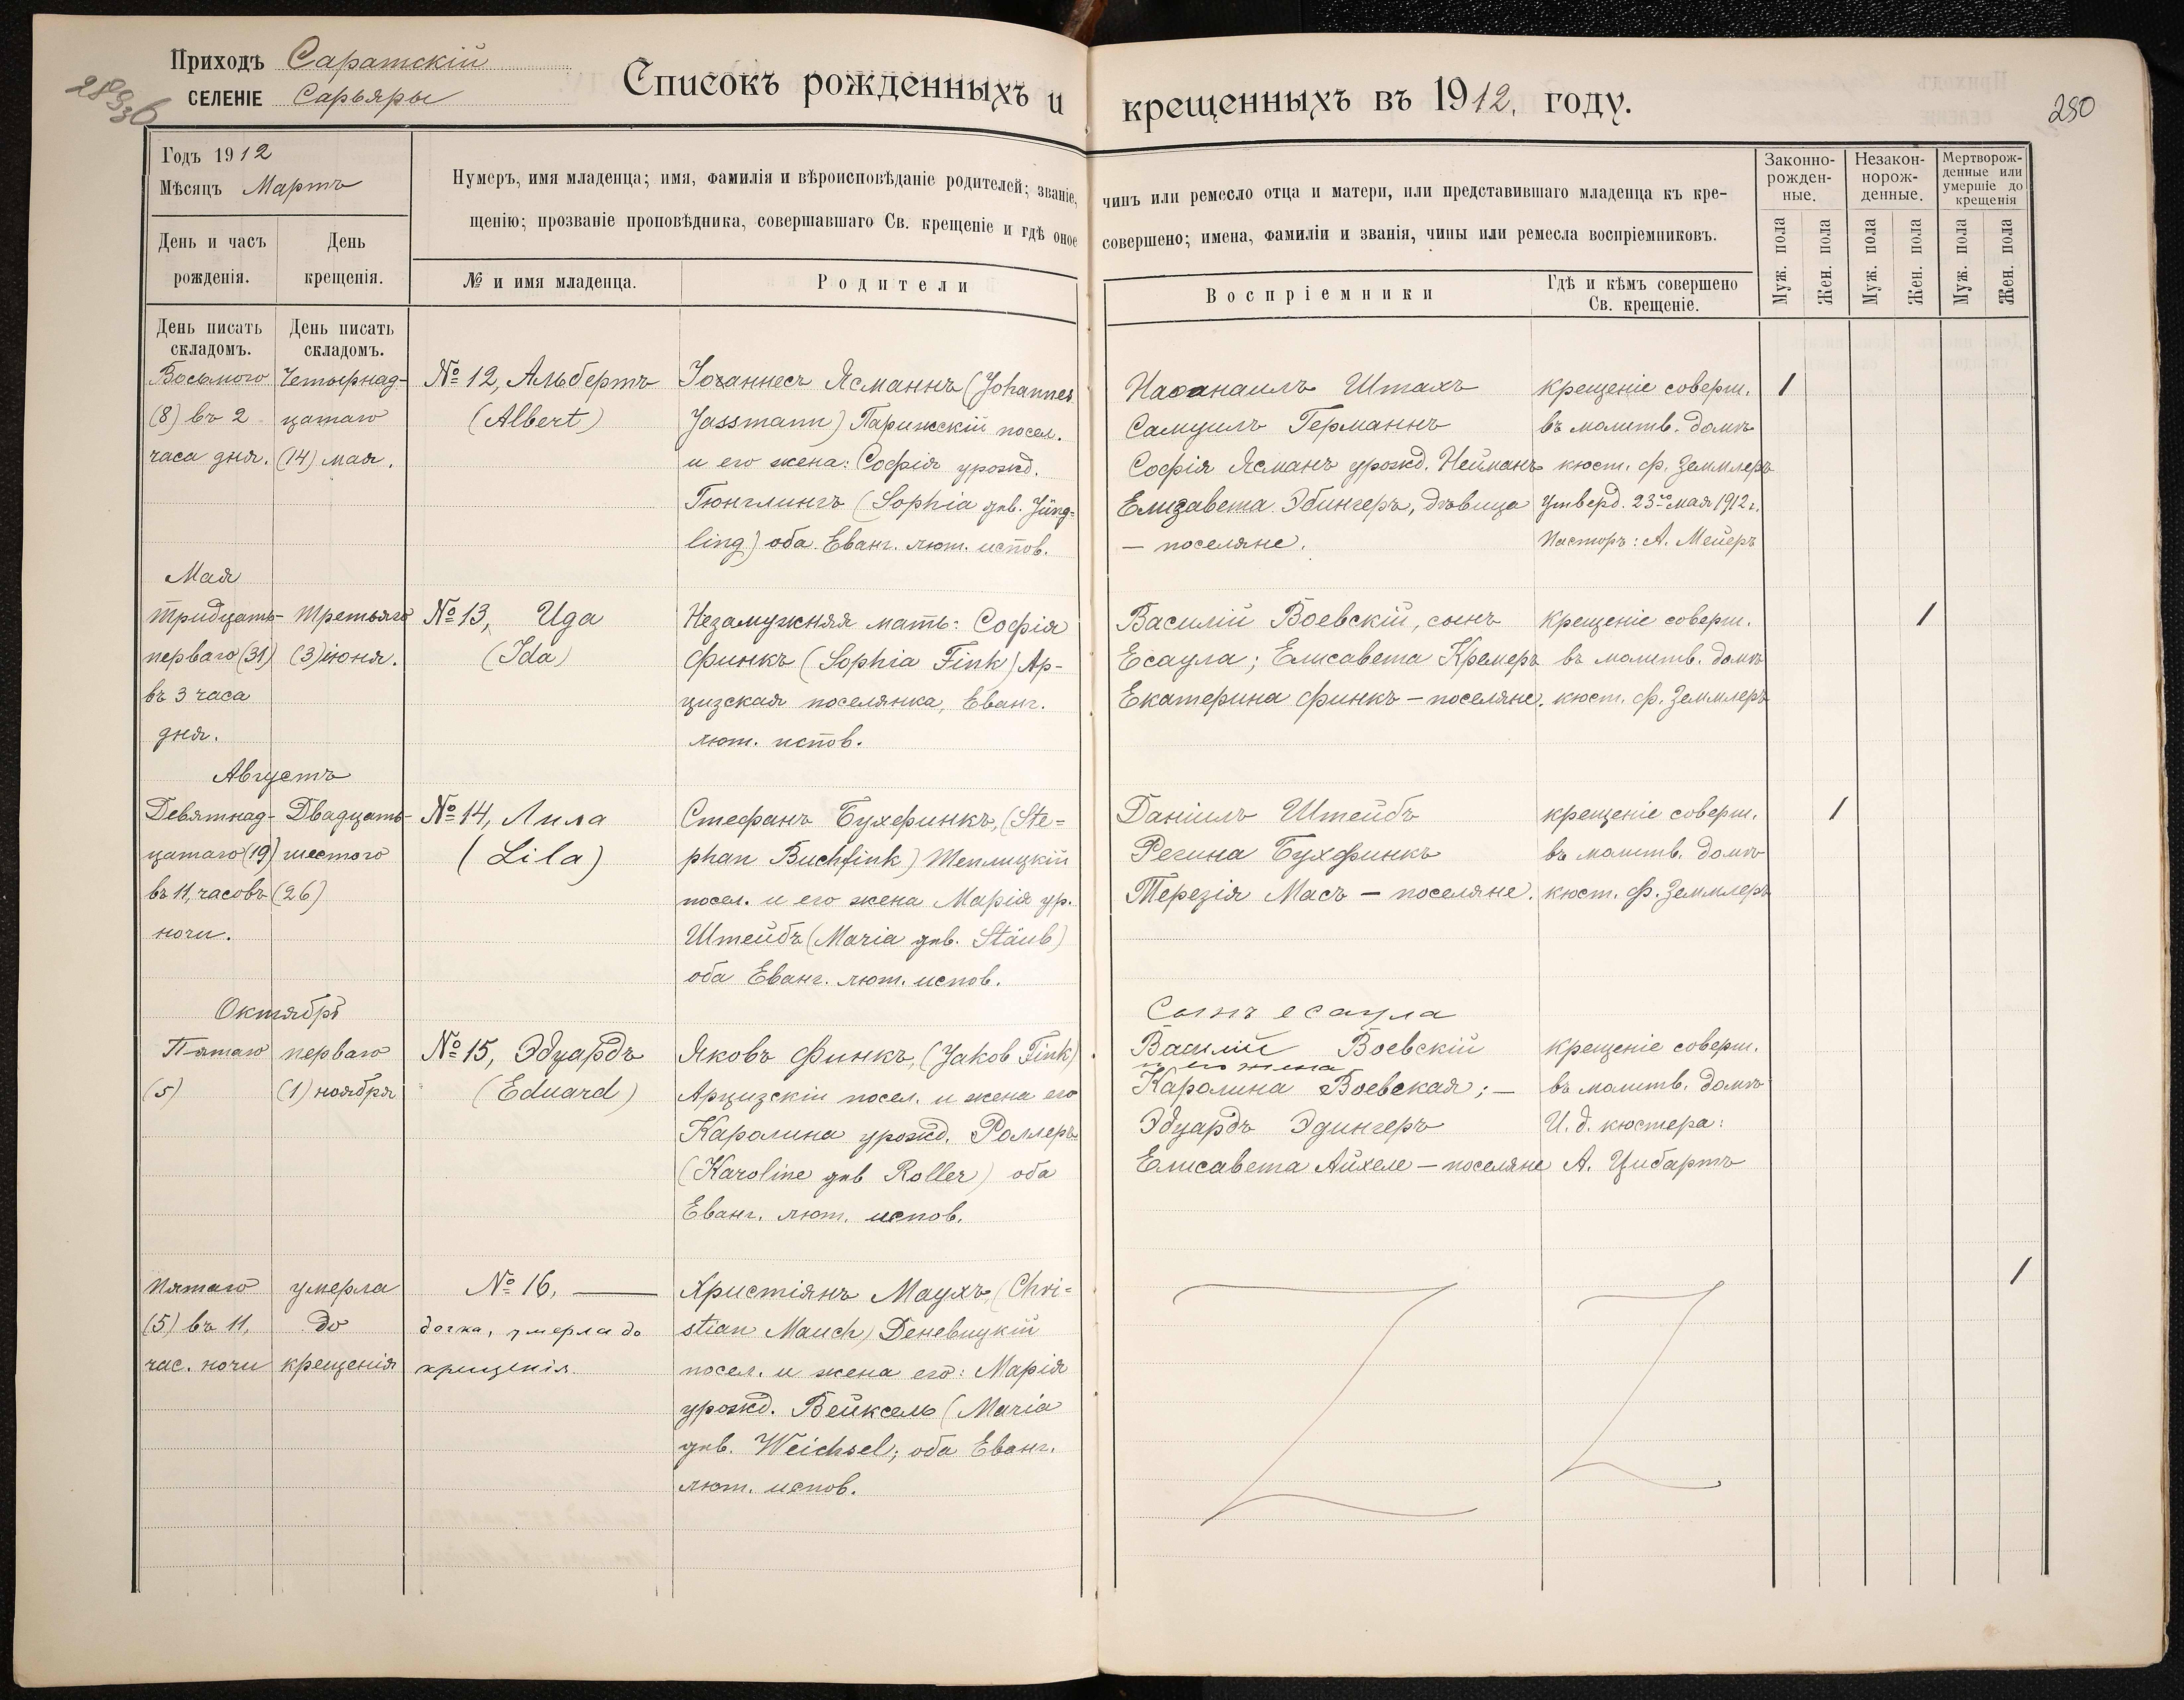 Приходъ Саратскій
СЕЛЕНІЕ Сарьяры
Списокъ рожденныхъ и крещенныхъ въ 1912, году.
280
Годъ 1912
Мѣсяцъ Мартъ
День и часъ рожденія.
День крещенія.
Нумеръ, имя младенца; имя, фамилія и вѣроисповѣданіе родителей; званіе, чинъ или ремесло отца и матери, или представившаго младенца къ кре-
щенію; прозваніе проповѣдника, совершавшаго Св. крещеніе и гдѣ оное совершено; имена, фамиліи и званія, чины или ремесла воспріемниковъ.
№ и имя младенца.
Родители
Воспріемники
Гдѣ и кѣмъ совершено
Св. крещеніе.
Законно-
рожден-
ные.
Незакон-
норож-
денные.
Мертворож-
денные или
умершіе до
крещенія
Муж. пола
Жен. пола
Муж. пола
Жен. пола
Муж. пола
Жен. пола
День писать
складомъ.
День писать
складомъ.
Восьмого
(8) въ 2
часа дня.
Четырнад-
цатаго
(14) мая.
№ 12, Альбертъ
(Albert)
Іоганнесъ Ясманнъ (Johannes
Jassmann) Парижскій посел.
и его жена: Софія урожд.
Гюнглингъ (Sophia геб. Jüng-
ling) оба Еванг. лют. испов.
Наѳанаилъ Штахъ
Самуилъ Германнъ
Софія Ясманъ урожд. Нейманъ
Елизавета Эбингеръ, дѣвица
— поселяне.
крещеніе соверш.
въ молитв. домѣ
кюст. Ф. Землеръ
Утверд. 23го мая 1912 г.
Пасторъ: А. Мейеръ
1
Мая
тридцать-
перваго (31)
въ 3 часа
дня.
третьяго
(3) іюня.
№ 13, Ида
(Ida)
Незамужняя мать: Софія
Финкъ (Sophia Fink) Ар-
цизская поселянка, Еванг.
лют. испов.
Василій Воевскій, сынъ
Есаула; Елисавета Кремеръ
Екатерина Финкъ — поселяне.
крещеніе соверш.
въ молитв. домѣ
кюст. Ф. Землеръ
1
Августъ
Девятнад-
цатаго (19)
въ 11, часовъ
ночи.
Двадцать-
шестого
(26)
№ 14, Лила
(Lila)
Стефанъ Бухфинкъ, (Ste=
phan Buchfink) Теплицкій
посел. и его жена Марія ур.
Штейбъ (Maria геб. Stäub)
оба Еванг. лют. испов.
Даніилъ Штейбъ
Регина Бухфинкъ
Терезія Масъ — поселяне.
крещеніе соверш.
въ молитв. домѣ
кюст. Ф. Землеръ
1
Октябрь
Пятаго
(5)
перваго
(1) ноября
№ 15, Эдуардъ
(Eduard)
Яковъ Финкъ, (Jakob Fink)
Арцизскій посел. и жена его
Каролина урожд. Роллеръ
(Karoline геб Roller) оба
Еванг. лют. испов.
Сынъ есаула
Василій Воевскій
и его жена
Каролина Воевская; —
Эдуардъ Эдингеръ
Елисавета Айхеле — поселяне
крещеніе соверш.
въ молитв. домѣ
И. д. кюстера:
А. Цибартъ
пятаго
(5) въ 11,
час. ночи
умерла
до
крещенія
№ 16, —
дочка, умерла до
крещенія.
Христіянъ Маухъ, (Chri=
stian Mauch) Деневицкій
посел. и жена его: Марія
урожд. Вейксель (Maria
геб. Weichsel; оба Еванг.
лют. испов.
1